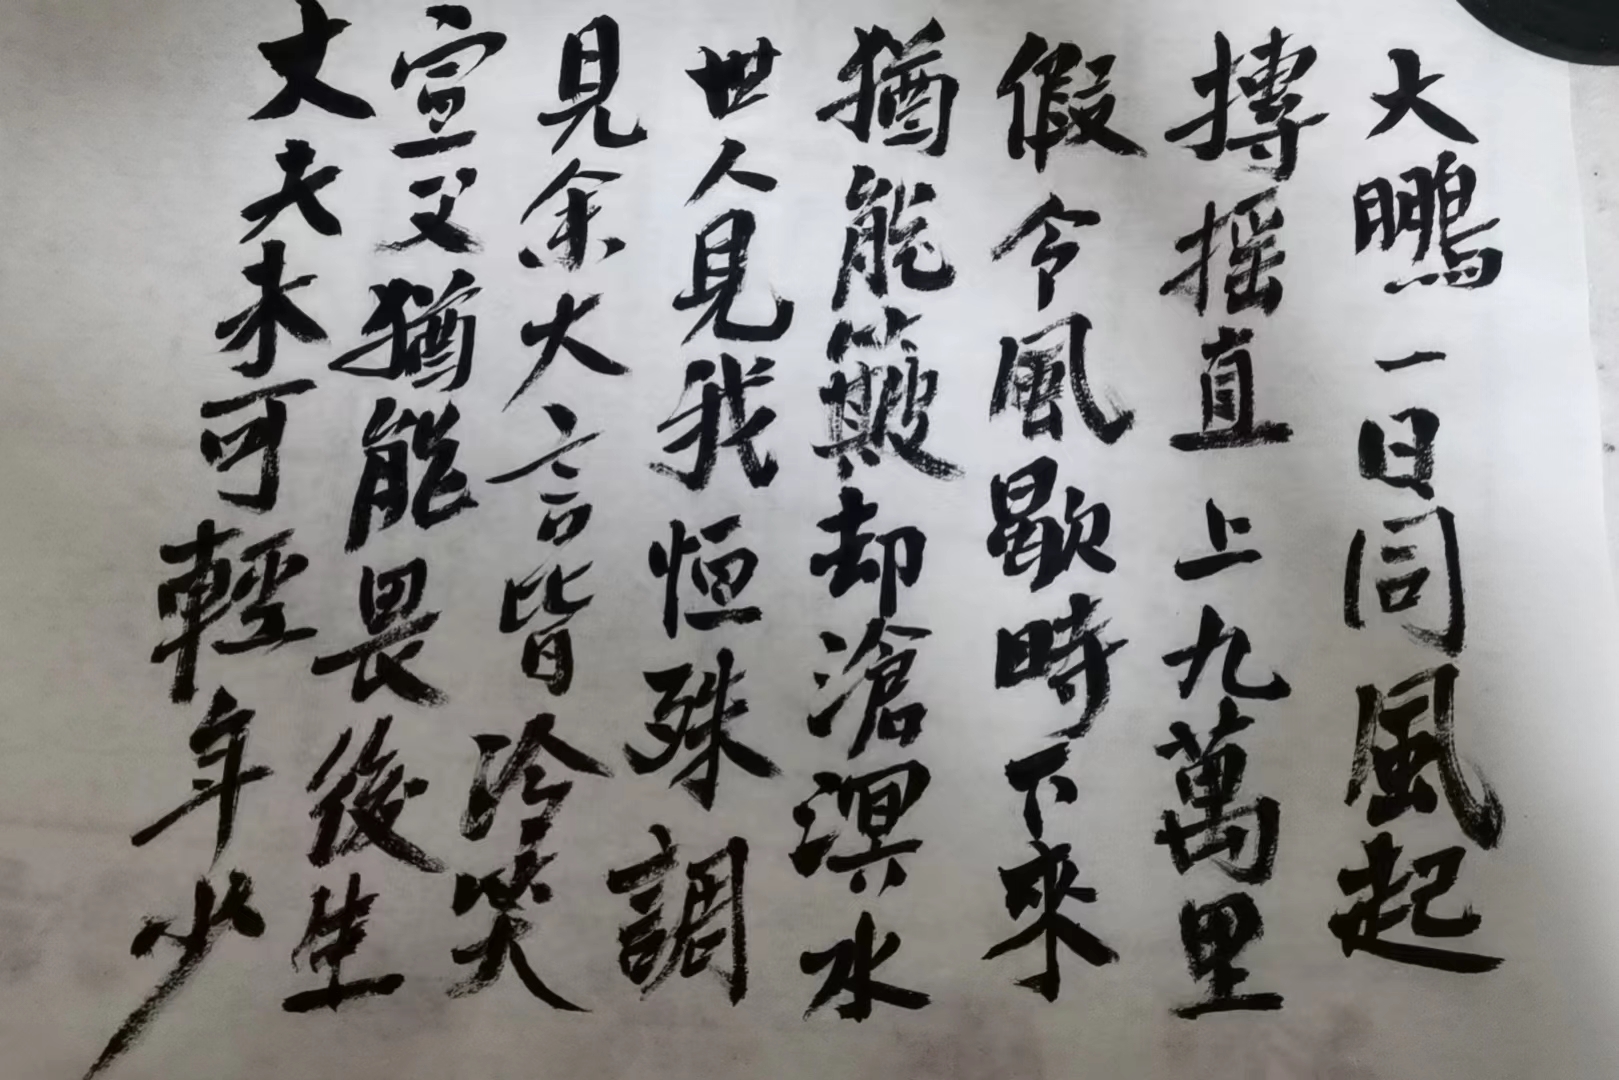 大鵬一日同風起
摶搖直上九萬里
假令風歇時下來
猶能簸却滄溟水
世人見我恒殊調
見余大言皆冷笑
宣父猶能畏後生
丈夫未可輕年少